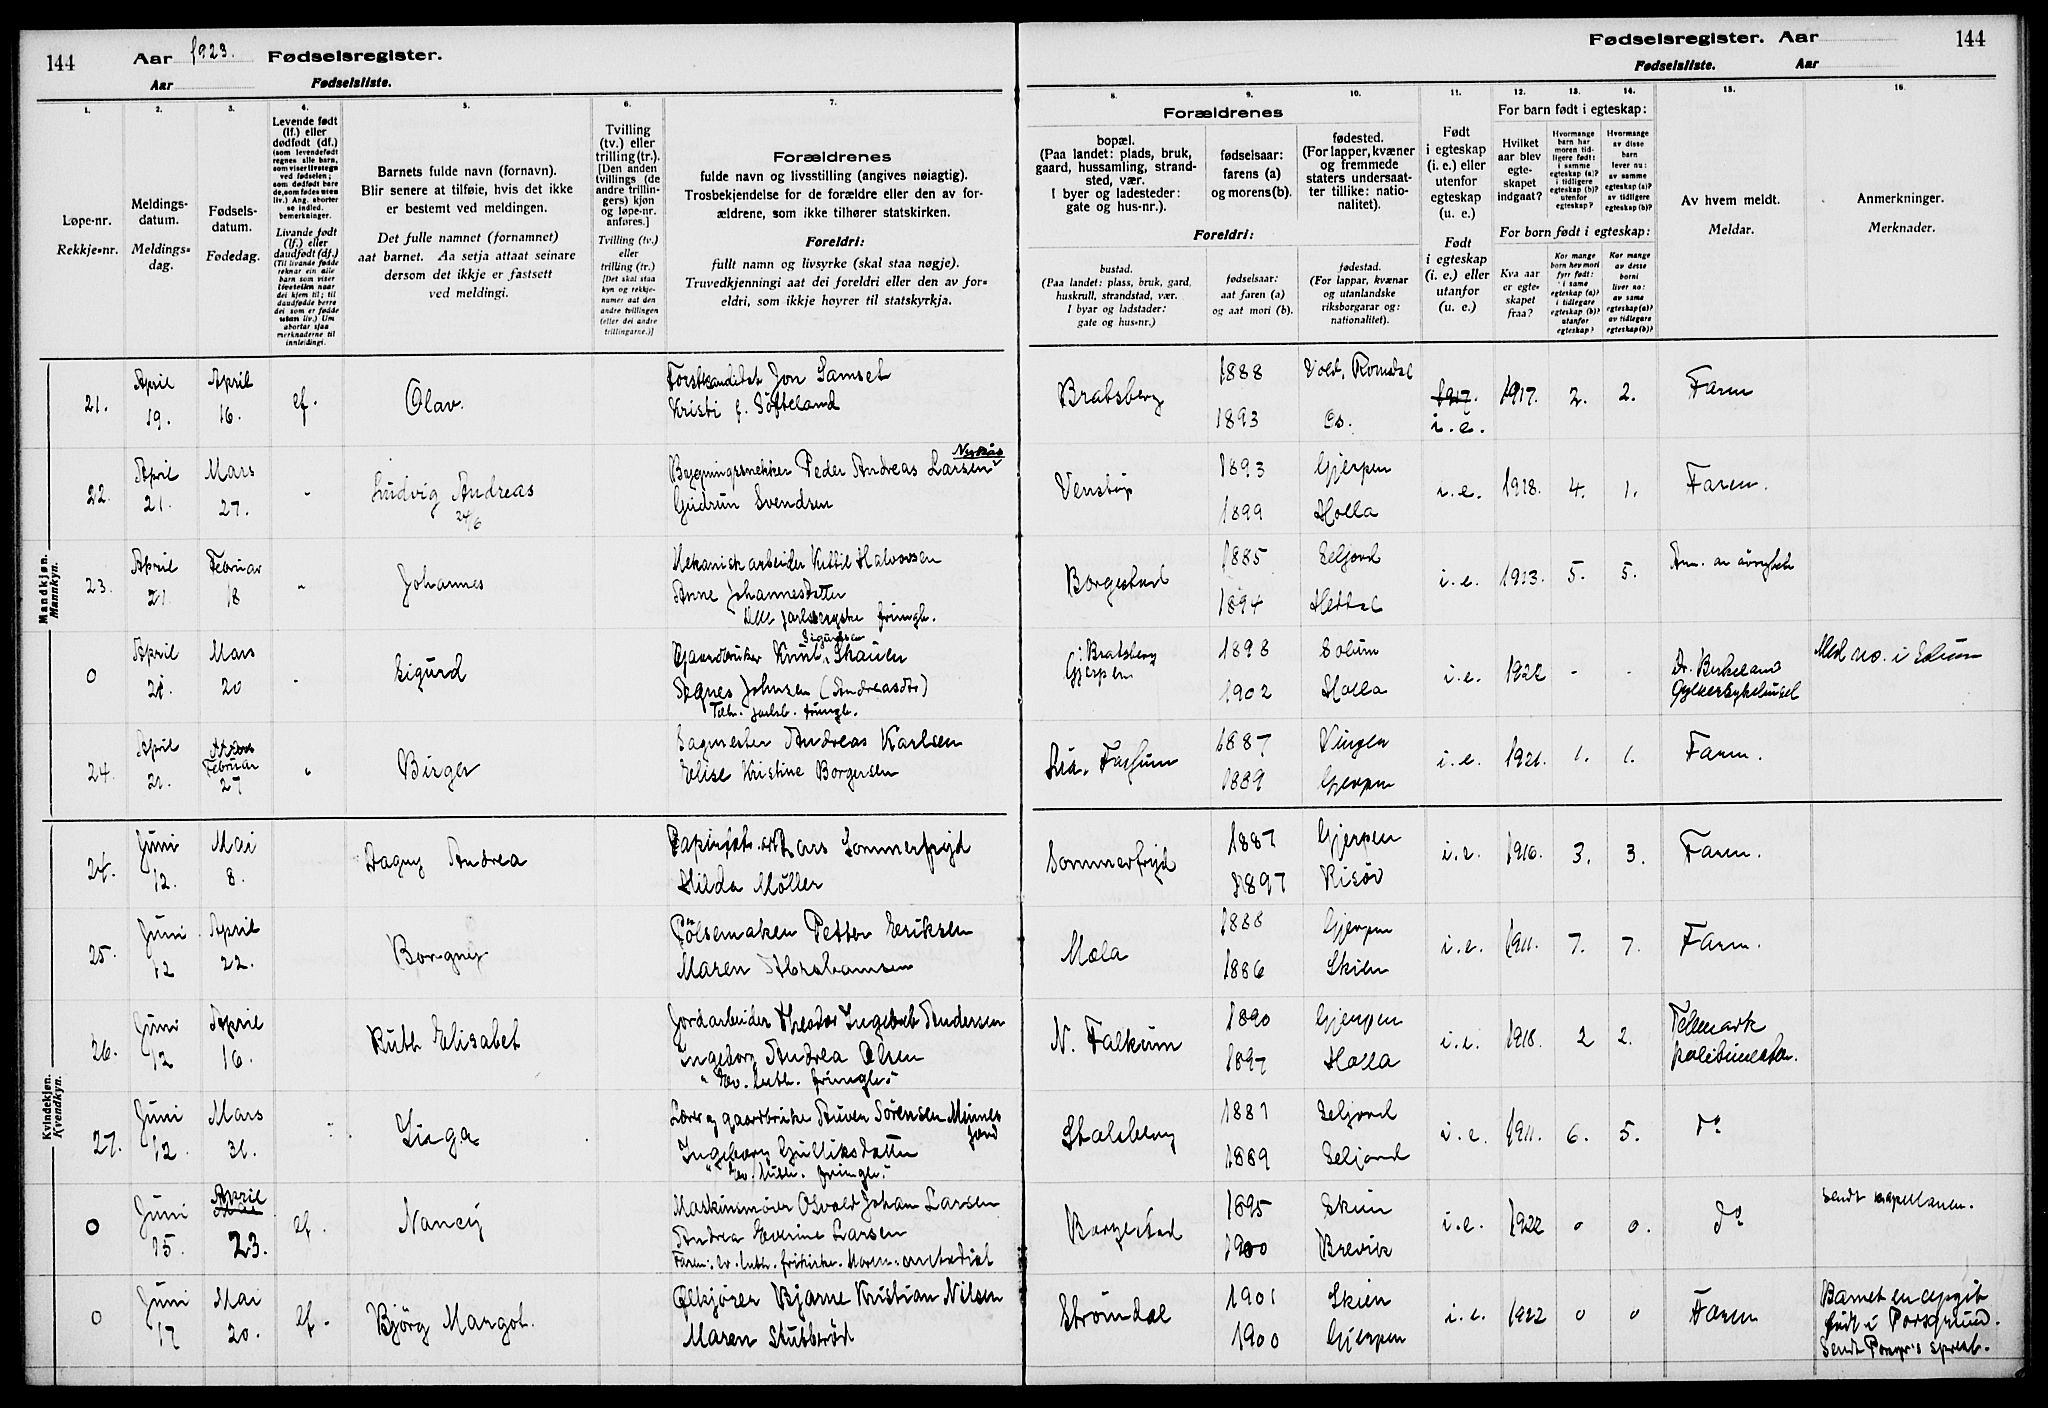 144 Aar 1923. Fødselsregister.
Aar Fødselsliste.
Fødselsregister. Aar 144
Fødselsliste. Aar
1.
Løpe-nr.
Rekkje-nr.
2.
Meldings-
datum.
Meldings-
dag.
3.
Fødsels-
datum.
Fødedag.
4.
Levende født
(lf.) eller
dødfødt (df.)
(som levendefødt
regnes alle barn,
som viser livstegn
ved fødselen;
som dødfødt bare
de, som fødes uten
liv.) Ang. aborter
se indled.
bemerkninger.
Livande født
(lf.) eller
daudfødt (df.)
(Til livande fødde
reknar ein alle
barn som viser
livsteikn naar
dei kjem til; til
daudfødde berre
dei som er fødde
utan liv.) Um
abortar sjaa
merknaderne til
innleidingi.
5.
Barnets fulde navn (fornavn).
Blir senere at tilføie, hvis det ikke
er bestemt ved meldingen.
Det fulle namnet (fornamnet)
aat barnet. Aa setja attaat seinare
dersom det ikkje er fastsett
ved meldingi.
6.
Tvilling
(tv.) eller
trilling (tr.).
[Den anden
tvillings (de
andre trillin-
gers) kjøn
og løpe-nr.
anføres.]
Tvilling (tv.)
eller
trilling (tr.)
[Det skal staa
kyn og rekkje-
numer aat den
andre tvillingen
(eller dei andre
trillingarne.)]
7.
Forældrenes
fulde navn og livsstilling (angives nøiagtig).
Trosbekjendelse for de forældre eller den av for-
ældrene, som ikke tilhører statskirken.
Foreldri:
fullt namn og livsyrke (skal staa nøgje).
Truvedkjenningi aat dei foreldri eller den av for-
eldri, som ikkje høyrer til statskyrkja.
Forældrenes
8.
bopæl.
(Paa landet: plads, bruk,
gaard, hussamling, strand-
sted, vær.
I byer og ladesteder:
gate og hus-nr.).
9.
fødselsaar:
farens (a)
og morens (b).
10.
fødested.
(For lapper, kvæner
og fremmede
staters undersaat-
ter tillike: natio-
nalitet).
Foreldri:
bustad.
(Paa landet: plass, bruk, gard,
huskrull, strandstad, vær.
I byar og ladstader:
gate og hus-nr.)
fødselsaar:
aat faren (a)
og aat mori (b).
fødestad.
(For lappar, kvænar
og utanlandske
riksborgarar og:
nationalitet).
11.
Født
i egteskap
(i. e.) eller
utenfor
egteskap
(u. e.)
Født
i egteskap
(i. e.) eller
utanfor
(u. e.)
For barn født i egteskap:
12.
Hvilket
aar blev
egte-
skapet
indgaat?
13.
Hvormange
barn har
moren tid-
ligere født:
i samme
egteskap (a)?
i tidligere
egteskap (b)?
utenfor
egteskap?
14.
Hvormange
av disse
barn
lever nu:
av samme
egteskap (a)?
av tidligere
egteskap (b)?
For born født i egteskap:
Kva aar
er egte-
skapet
fraa?
Kor mange
born hev mori
fyrr født:
i same
egteskap (a)?
i tidlegare
egteskap (b)?
utanfor
egteskap?
Kor mange
av desse
borni
liver no:
av same
egteskap (a)?
av tidlegare
egteskap (b)?
15.
Av hvem meldt.
Meldar.
16.
Anmerkninger.
Merknader.
Mandkjøn.
Mannkyn.
21. April 19. April 16. lf. Olav.
Forstkandidat Jon Samset
Kristi f. Softeland
Bratsberg 1888 Vold, Romsdal 1917. i.e. 1917. 2. 2. Faren
1893 Os.
22. April 21. Mars 27. " Ludvig Andreas 24/6
Bygningssnekker Peder Andreas Larsen
Gudrun Svendsen
Venstøp 1893 Gjerpen i.e. 1918. 4. 1. Faren.
1899 Holla
23. April 21. Februar 18 " Johannes
Mekanisk arbeider Kittil Halvorsen
Anne Johannesdatter
Borgestad 1885 Seljord i.e. 1913. 5. 5.
1894 Hettal
0 April 21. Mars 20 " Sigurd
Gaardbruker Knut Sigurdsen Skauen
Agnes Johnsen (Andreasdtr)
Bratsberg i Gjerpen 1898 Solum i.e. 1922 - - Dr. Birkeland
1902 Holla
Med no. i Solum
24. April 21. Februar 27 " Birger
Sagmester Andreas Karlsen
Elise Kristine Borgersen
Lia. Fossum 1887 Vinger i.e. 1921. 1. 1. Faren.
1889 Gjerpen
Kvindekjøn.
Kvendkyn.
24. Juni 12. Mai 8. Dagny Andrea
Papirfab. arb. Lars Sommerfryd
Hilda Møller
Sommerfryd 1887 Gjerpen i.e. 1916. 3. 3. Faren.
1897 Risør
25. Juni 12 April 22. Borgny
Pølsemaker Petter Eriksen
Maren Abrahamsen
Mæla 1888 Gjerpen i.e. 1911. 7. 7. Faren.
1886 Skien
26. Juni 12 April 16. Ruth Elisabet
Jordarbeider Theodor Ingebret Andersen
Ingeborg Andrea Olsen
"Ev. luth. frimgh."
N. Falkum 1890 Gjerpen i.e. 1918. 2 2. Telemark
1897 Holla politimester.
27. Juni 12. Mars 31. Inga
Lærer og gaardbruker Auver Sørensen Meines
Ingeborg Gulliksdatter
"Ev. luth. frimgh."
Stalsberg 1881 Seljord i.e. 1911. 6. 5. do
1889 Seljord
0 Juni 15. April 23. lf. Nancy
Maskinsmører Osvald Johan Larsen
Andrea Everine Larsen
Faren: ev. luth. frikirke. Moren: metodist
Borgestad 1895 Skien i.e. 1922 0 0. do
1900 Brevik
Sendt kapellanen.
0 Juni 17 Mai 20. lf. Bjørg Margot.
Ølkjører Bjarne Kristian Nilsen
Maren Stubbrød
Strømdal 1901 Skien i.e. 1922 0 0 Faren
1900 Gjerpen
Barnet er opgit
født i Porsgrund.
Sendt Porsgr's sprest.